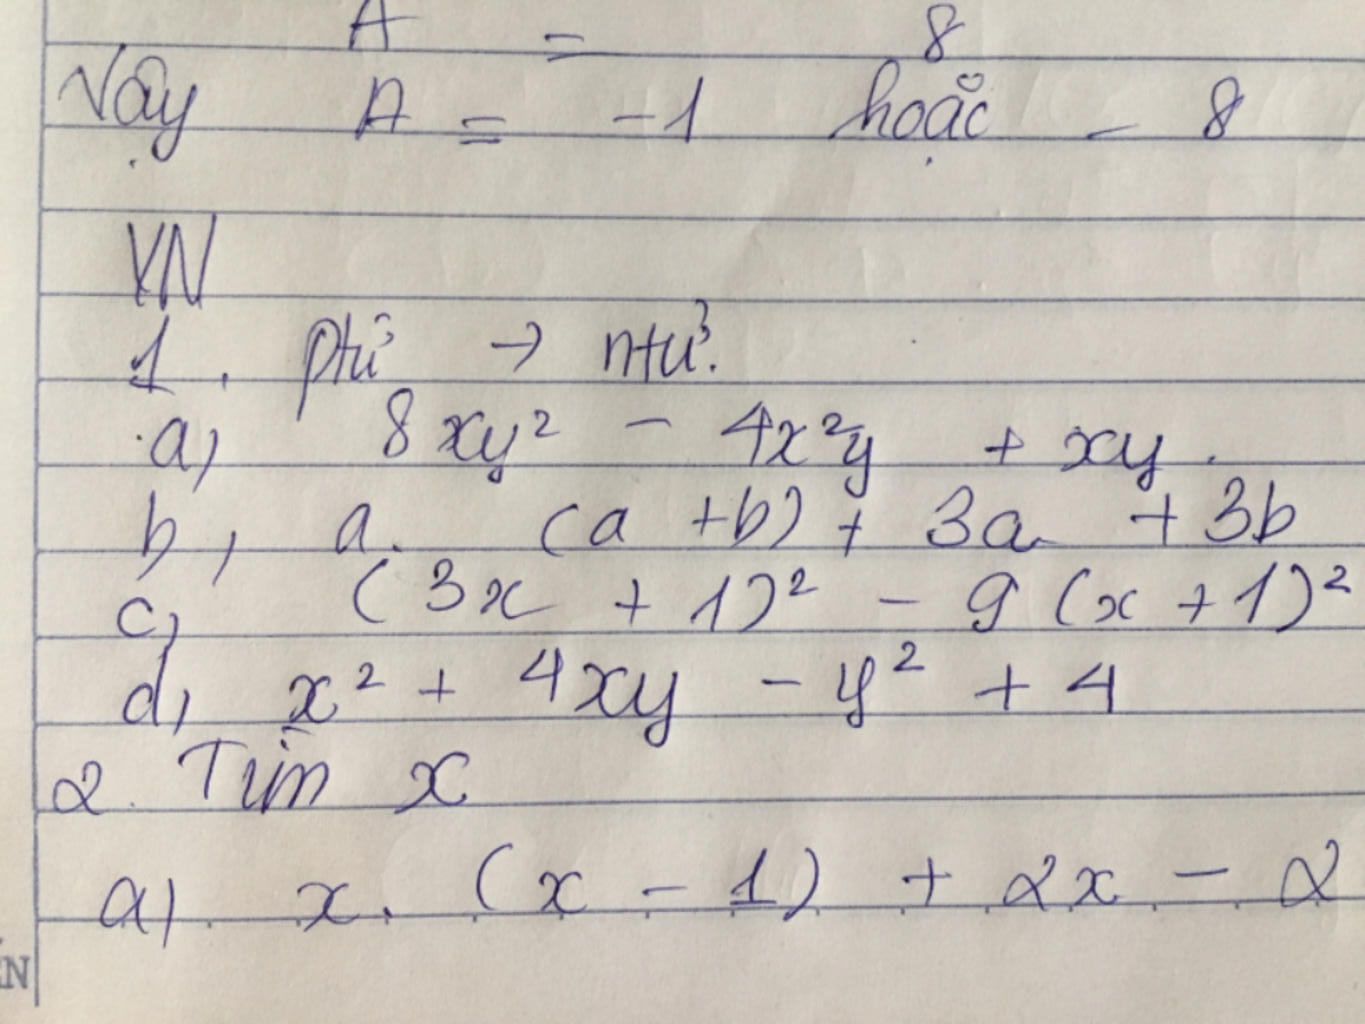 A = 8
Vậy A = -1 hoặc - 8
VN
1. ptử → ntử.
a, 8xy² - 4x²y + xy.
b, a. (a + b) + 3a + 3b
c, (3x + 1)² - 9 (x + 1)²
d, x² + 4xy - y² + 4
2. Tìm x
a) x. (x - 1) + 2x - 2
ÊN